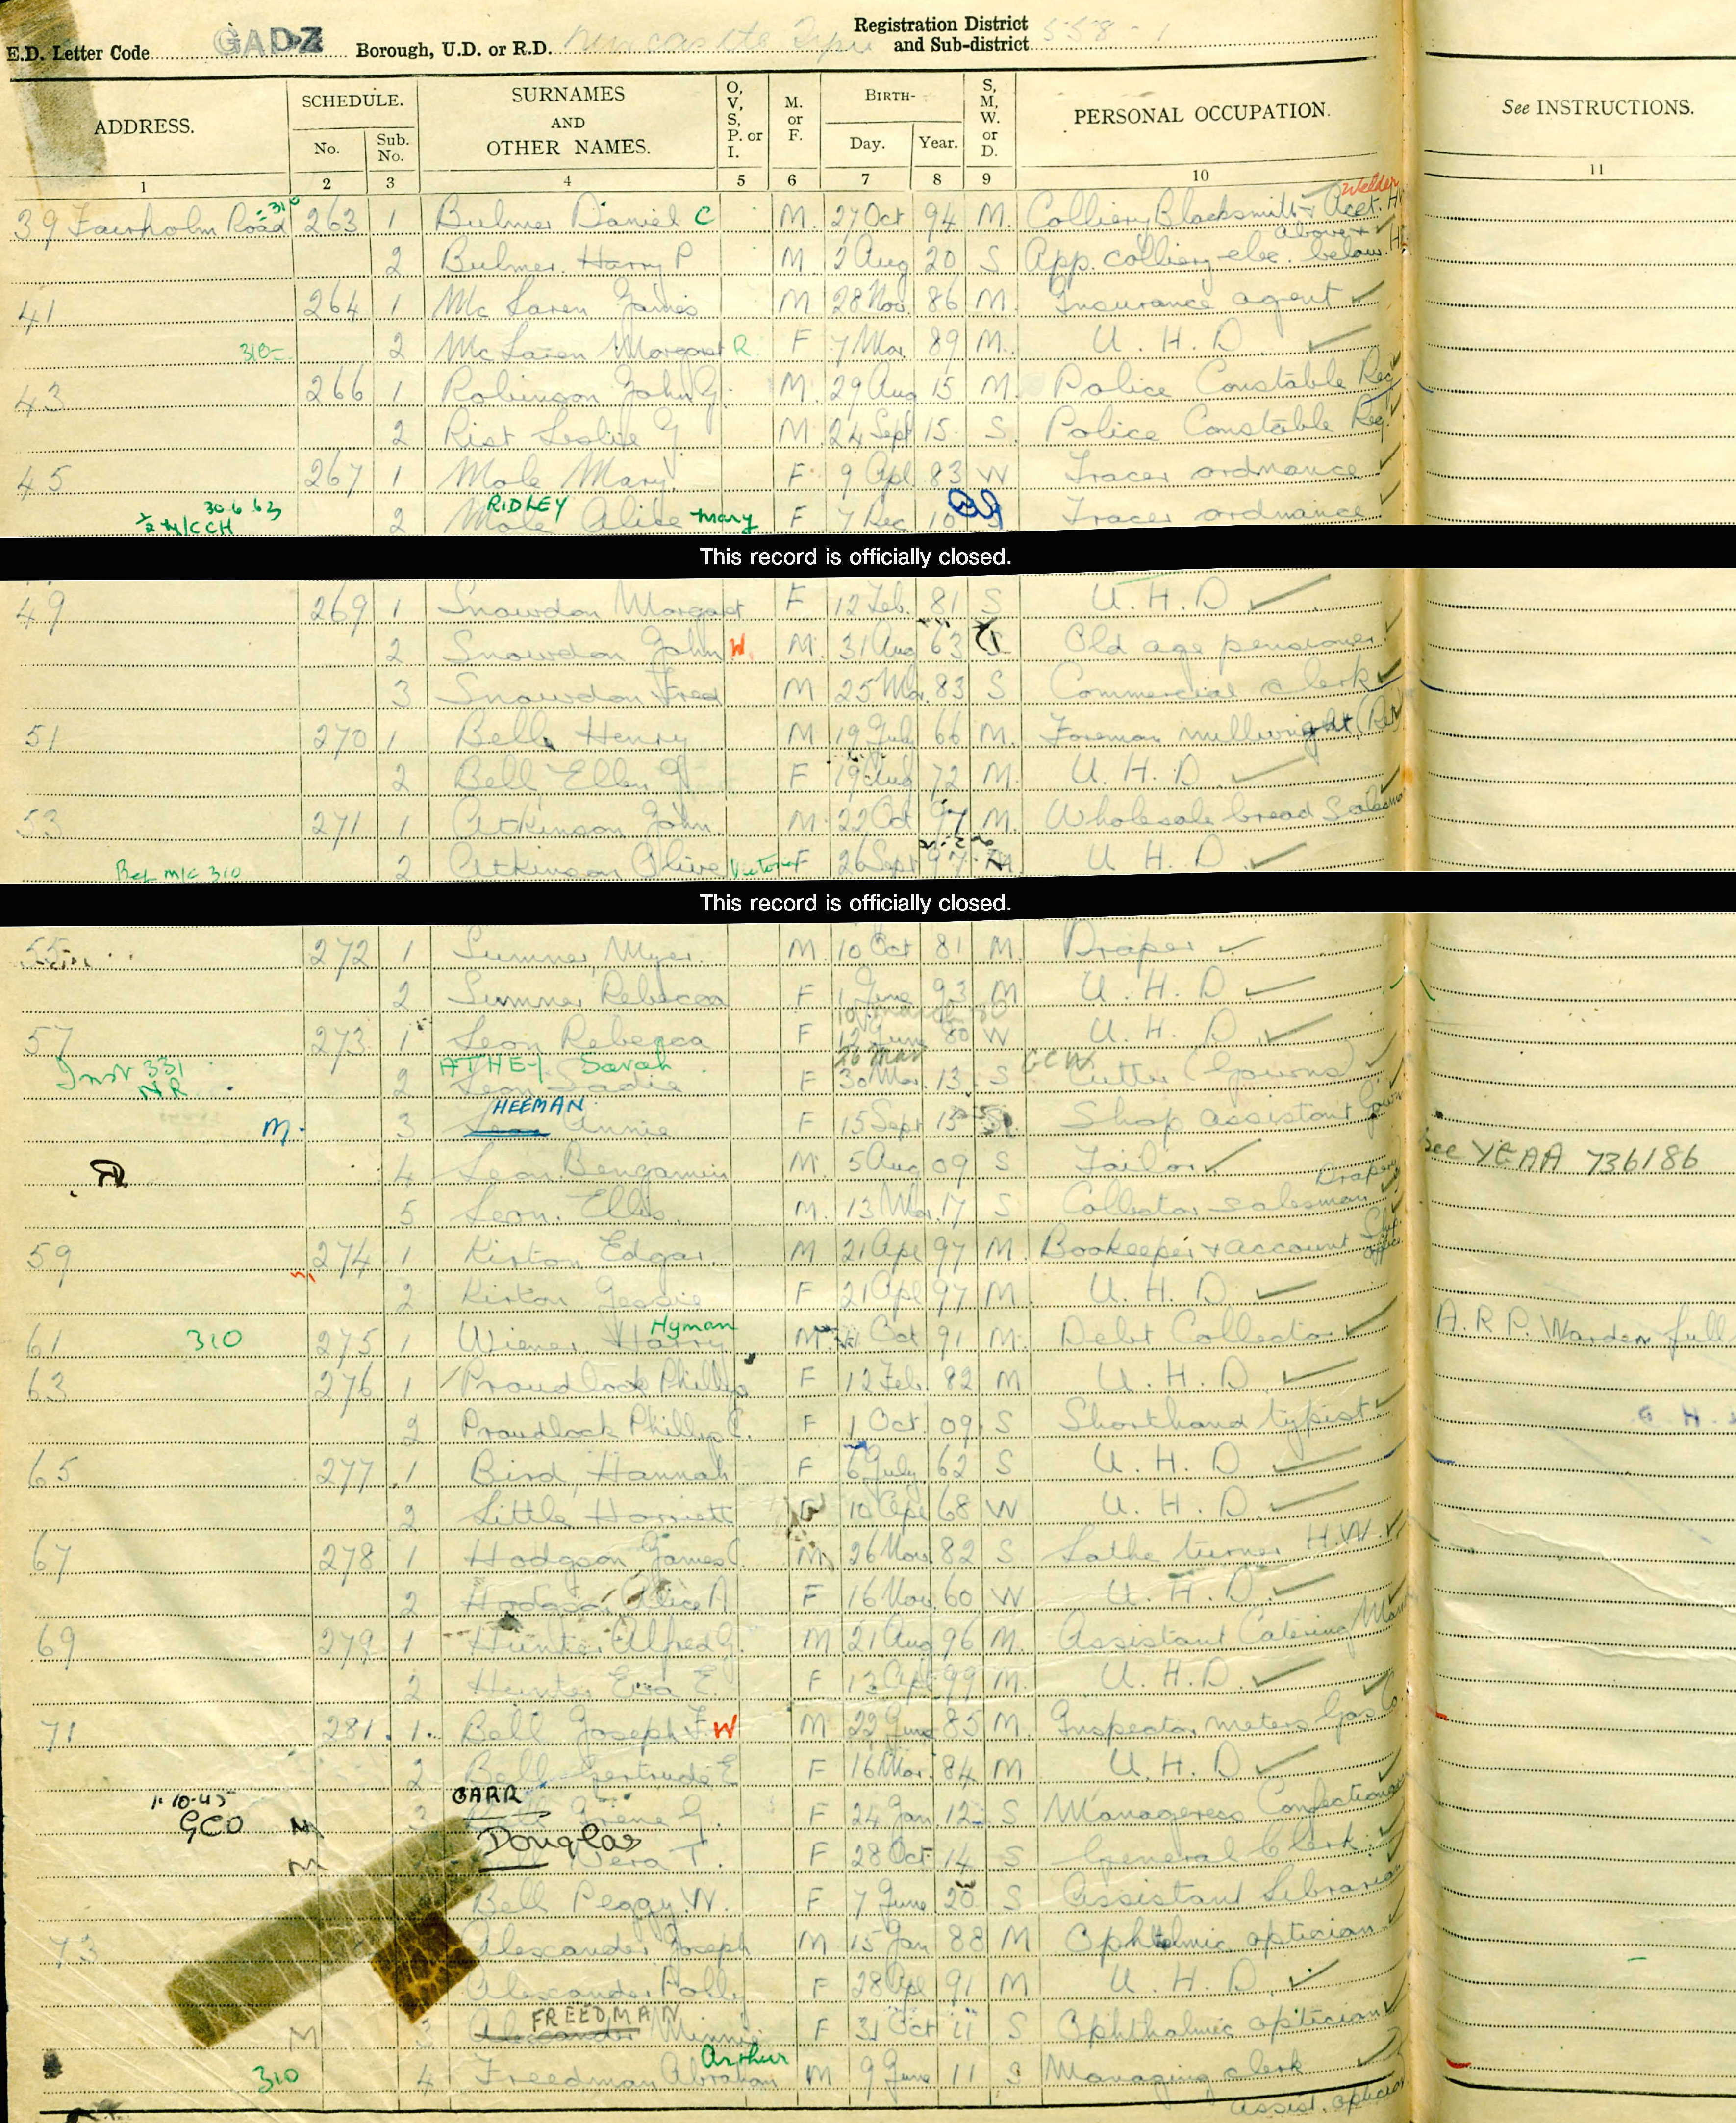 Registration District
E.D. Letter Code GADZ Borough, U.D. or R.D. Newcastle Tyne and Sub-district 558-1
ADDRESS. SCHEDULE. No. Sub. No. SURNAMES AND OTHER NAMES. O, V, S, P. or I. M. or F. BIRTH- Day. Year. S, M, W. or D. PERSONAL OCCUPATION. See INSTRUCTIONS.
1 2 3 4 5 6 7 8 9 10 11
Welder
39 Fairholm Road 263 1 Bulmer Daniel C M. 27 Oct 94 M. Colliery Blacksmith & Acet.
above &
2 Bulmer Harry P M. 2 Aug 20 S App. colliery elec. below
41 264 1 McLaren James M 28 Nov. 86 M. Insurance agent
310 2 McLaren Margaret R F 7 Mar 89 M. U. H. D
43 266 1 Robinson John G. M. 29 Aug 15 M. Police Constable Reg
2 Rist Leslie G M. 24 Sept 15 S. Police Constable Reg
45 267 1 Mole Mary F. 9 Apl 83 W Tracer ordnance
30.6.63 RIDLEY
2 Mole Alice Mary F 7 Dec 10 Tracer ordnance
This record is officially closed.
49 269 1 Snowdon Margaret F 12 Feb. 81 S U. H. D
2 Snowdon John W. M. 31 Aug 63 Old age pensioner
3 Snowdon Fred M 25 Mar. 83 S Commercial clerk
51 270 1 Bell Henry M 19 July 66 M. Foreman millwright (Ret)
2 Bell Ellen F 19 Aug 72 M. U. H. D
53 271 1 Atkinson John M. 22 Oct 97 M. Wholesale bread Salesman
310 2 Atkinson Olive Victoria F 26 Sept 97 M U. H. D
This record is officially closed.
55 272 1 Sumner Myer M. 10 Oct 81 M. Draper
2 Sumner Rebecca F 1 June 93 M U. H. D
57 273 1 Leon Rebecca F 12 June 80 W U. H. D
Inst 331 ATHEY Sarah
NR 2 Leon Sadie F 30 Mar. 13 S Cutter (Gowns)
HEEMAN
M. 3 Leon Annie F 15 Sept 15 Shop assistant Gown
4 Leon Bengamin M. 5 Aug 09 S Tailor See YEAA 736186
Drapery
5 Leon. Ellis. M. 13 Mar. 17 S Collector salesman
59 274 1 Kirton Edgar. M 21 Apl 97 M. Bookeeper & account Ship office
2 Kirton Jessie F 21 Apl 97 M. U. H. D
Hyman
61 310 275 1 Wiener Harry M Oct 91 M. Debt Collector A.R.P. Warden full
63 276 1 Proudlock Phillis F 12 Feb. 82 M U. H. D
2 Proudlock Phillis C. F 1 Oct 09 S Shorthand typist
65 277 1 Bird Hannah F 6 July 62 S U. H. D
2 Little Harriett F 10 Apl 68 W U. H. D.
67 278 1 Hodgson James C. M 26 Nov. 82 S Lathe turner H.W.
2 Hodgson Alice A F 16 Nov. 60 W U. H. D.
69 279 1 Hunter Alfred G. M 21 Aug 96 M. Assistant Catering Man
2 Hunter Eva E. F 13 Apl 99 M. U. H. D.
71 281 1 Bell Joseph F. W M 22 June 85 M. Inspector meters Gas Co.
2 Bell Gertrude E F 16 Mar. 84 M U. H. D
1.10.45 CARR
GCO M 3 Irene G. F 24 Jan 12 S Manageress Confectioner
Douglas
M Vera T. F 28 Oct 14 S General Clerk
Bell Peggy W. F 7 June 20 S Assistant Librarian
73 Alexander Joseph M 15 Jan 88 M Ophthalmic optician
Alexander Polly F 28 Apl 91 M U. H. D.
FREEDMAN
M 3 Alexander Minnie F 31 Oct 11 S Ophthalmic optician
Arthur
310 4 Freedman Abraham M 9 June 11 S Managing clerk
assist. optician